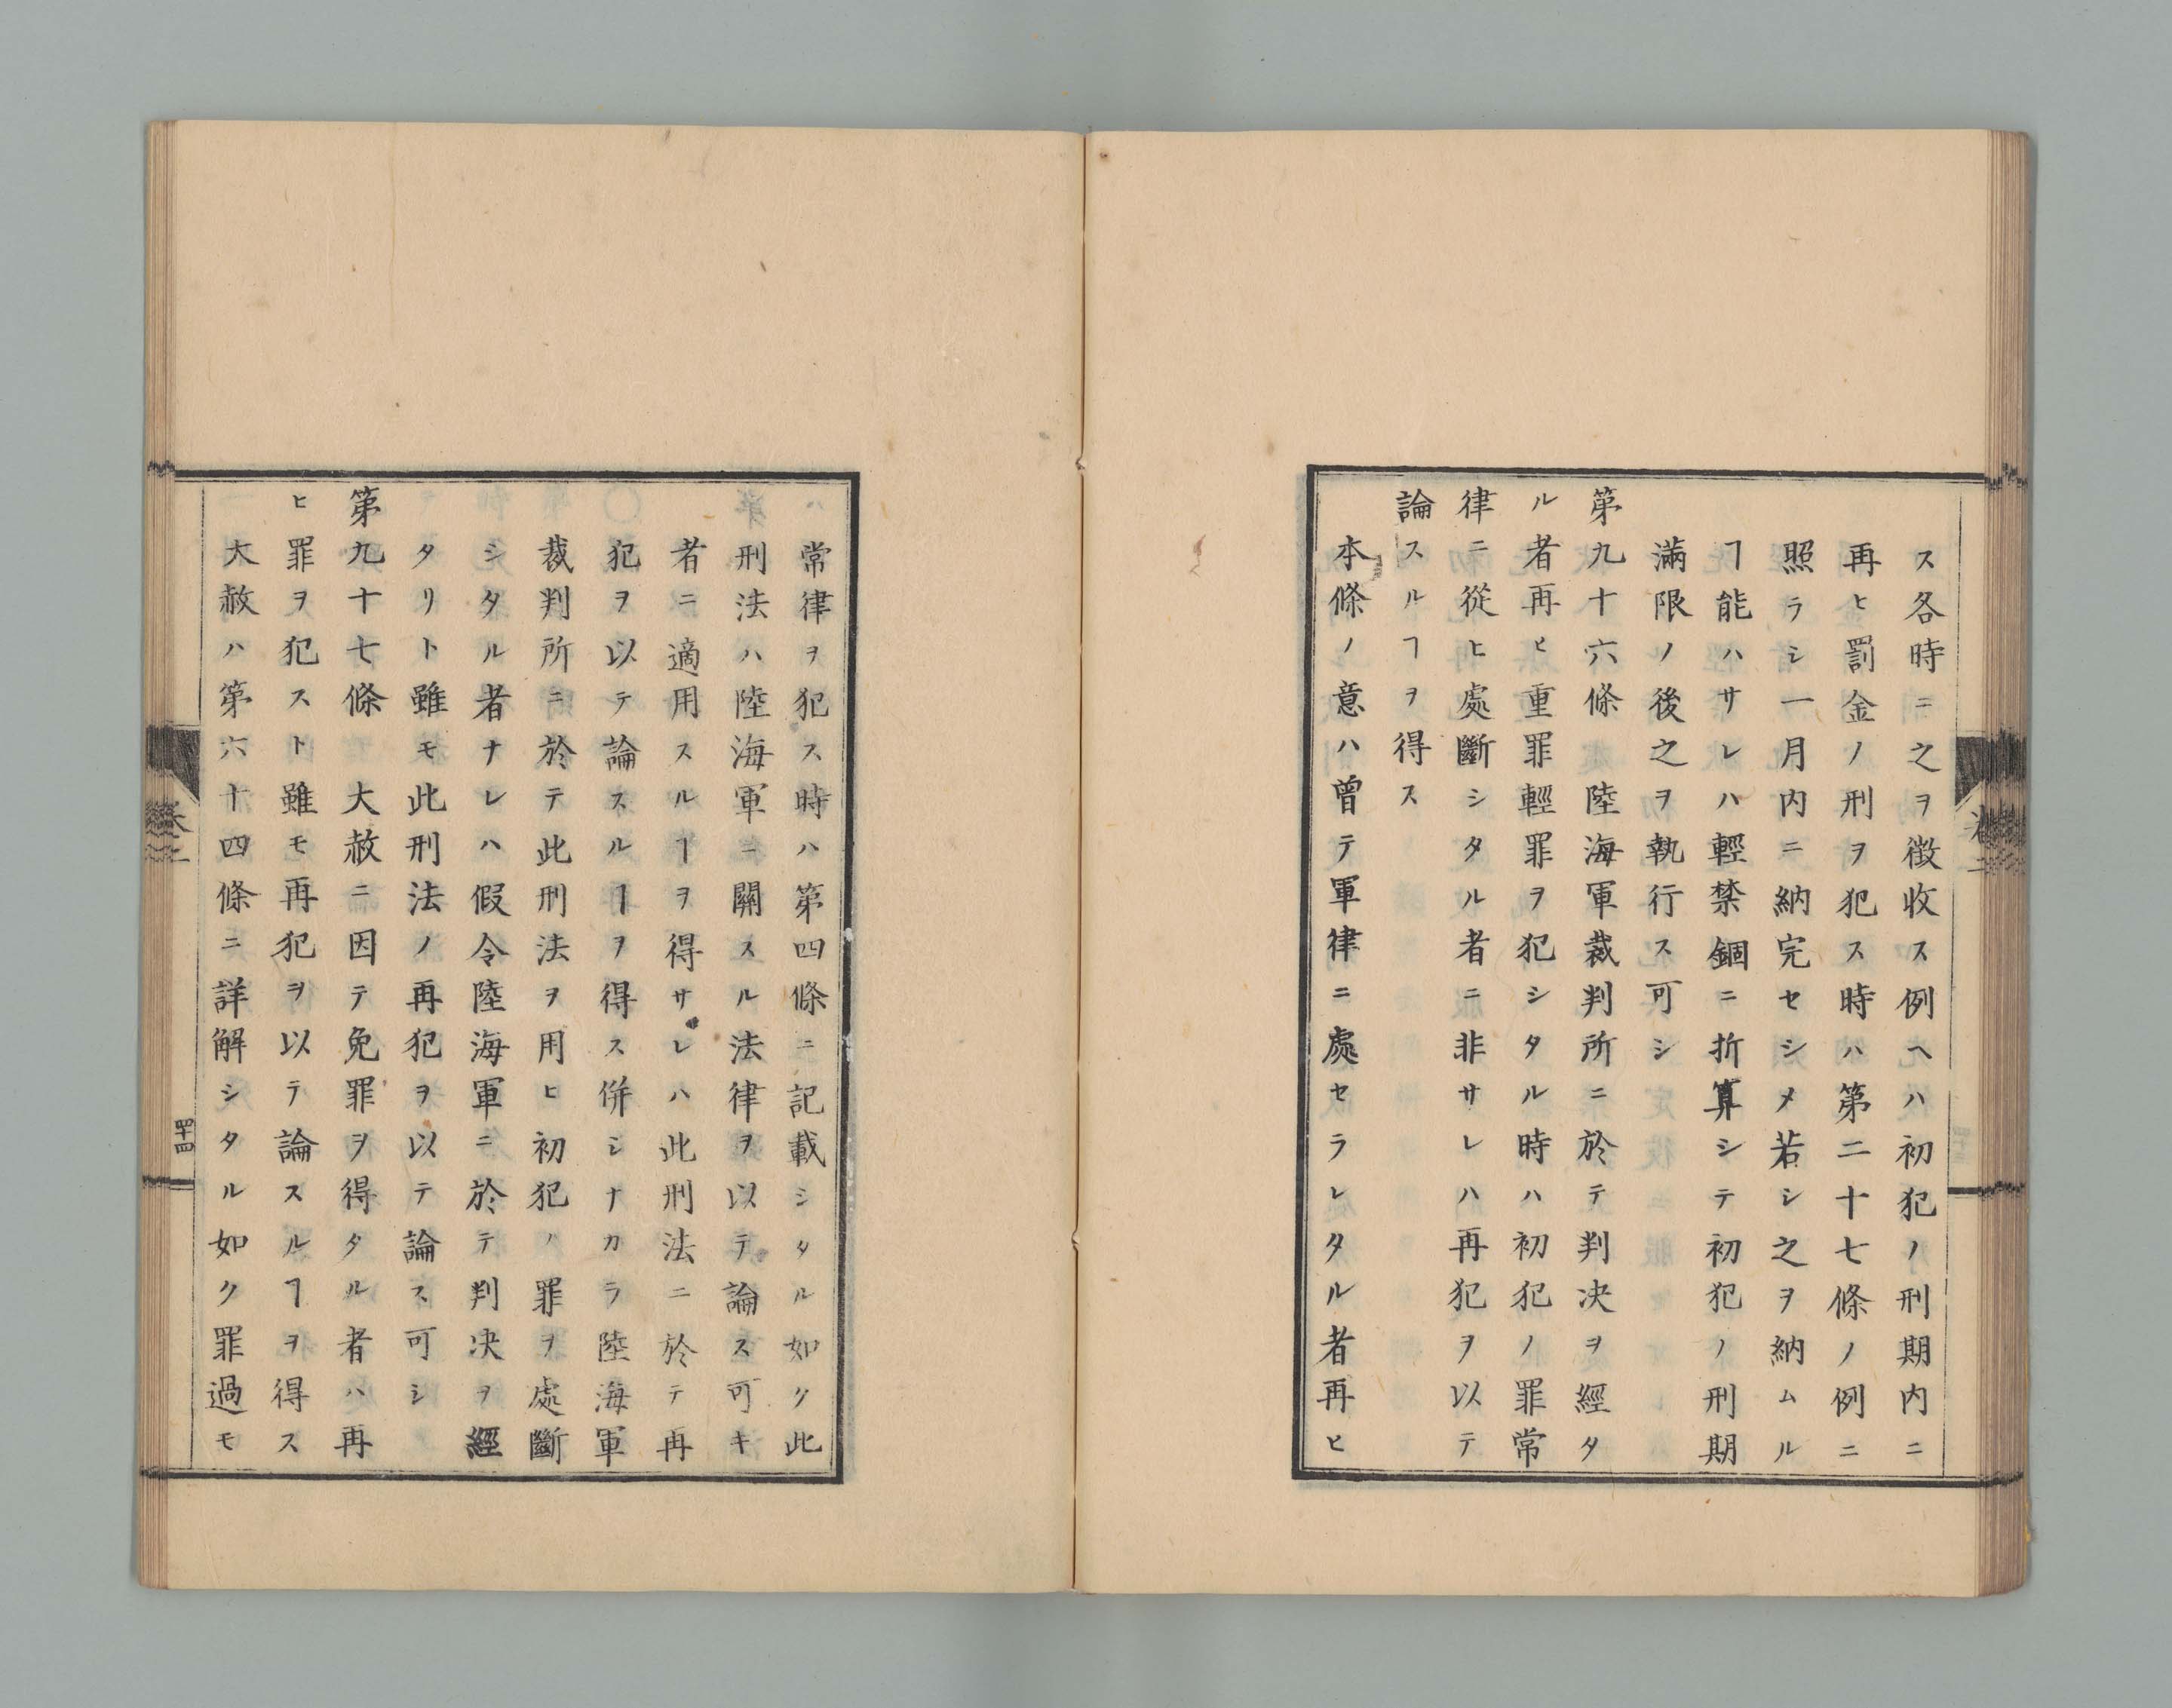 ス各時ニ之ヲ徴收ス例ヘハ初犯ノ刑期内ニ
再ヒ罰金ノ刑ヲ犯ス時ハ第二十七條ノ例ニ
照ラシ一月内ニ納完セシメ若シ之ヲ納ムル
ヿ能ハサレハ輕禁錮ニ折算シテ初犯ノ刑期
滿限ノ後之ヲ執行ス可シ
第九十六條 陸海軍裁判所ニ於テ判决ヲ經タ
ル者再ヒ重罪輕罪ヲ犯シタル時ハ初犯ノ罪常
律ニ從ヒ處斷シタル者ニ非サレハ再犯ヲ以テ
論スルヿヲ得ス
本條ノ意ハ曾テ軍律ニ處セラレタル者再ヒ
常律ヲ犯ス時ハ第四條ニ記載シタル如ク此
刑法ハ陸海軍ニ關スル法律ヲ以テ論ス可キ
者ニ適用スルヿヲ得サレハ此刑法ニ於テ再
犯ヲ以テ論スルヿヲ得ス併シナカラ陸海軍
裁判所ニ於テ此刑法ヲ用ヒ初犯ノ罪ヲ處斷
シタル者ナレハ假令陸海軍ニ於テ判决ヲ經
タリト雖モ此刑法ノ再犯ヲ以テ論ス可シ
第九十七條 大赦ニ因テ免罪ヲ得タル者ハ再
ヒ罪ヲ犯スト雖モ再犯ヲ以テ論スルヿヲ得ス
大赦ハ第六十四條ニ詳解シタル如ク罪過モ
卷二
四十四